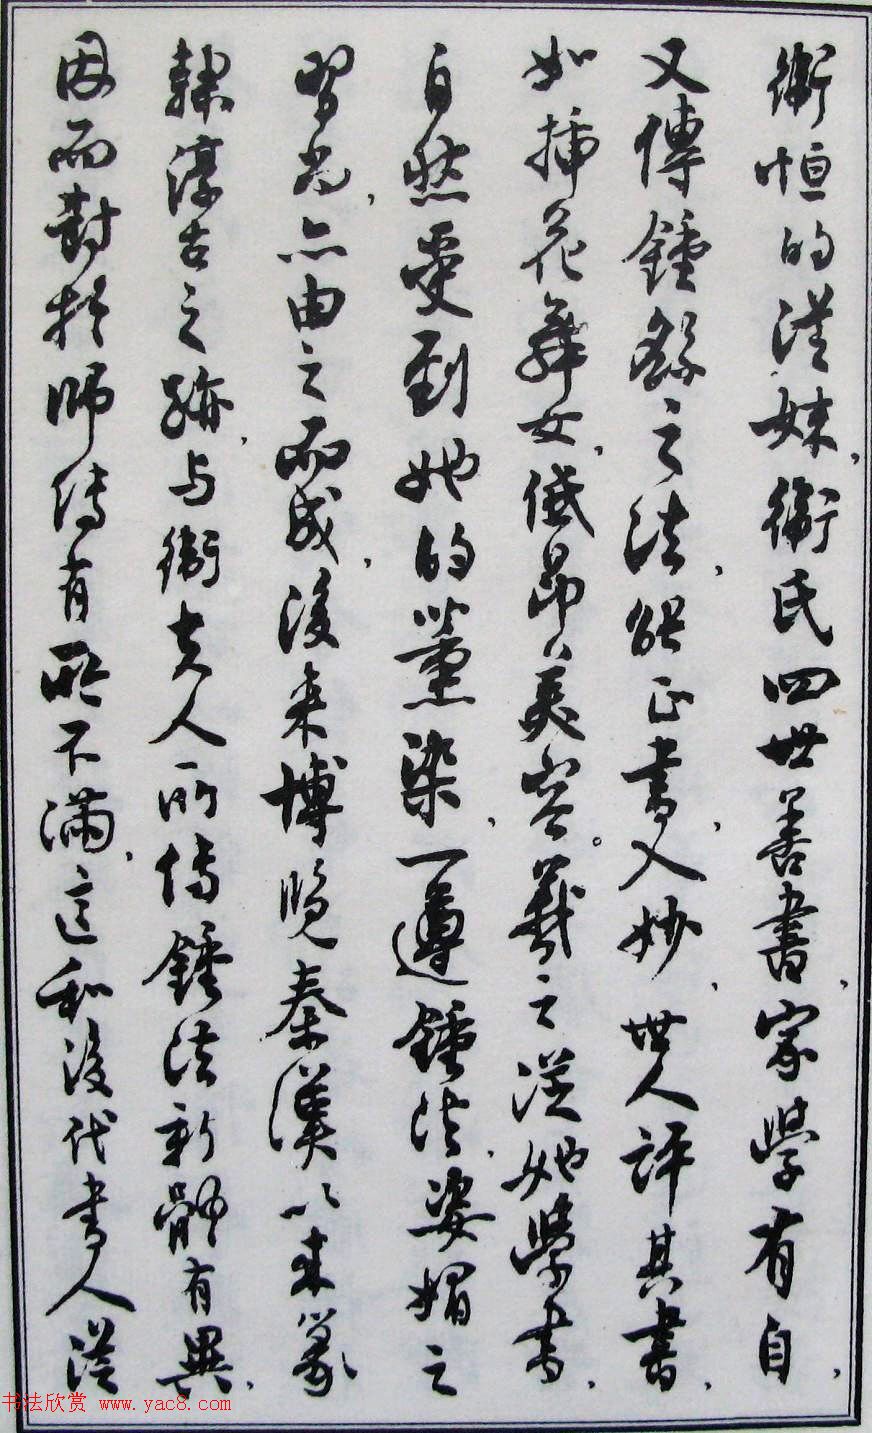 衛恒的従妹，衛氏四世善書，家學有自，
又傳鍾繇之法，能正書入妙，世人評其書，
如插花舞女，低昂美容。羲之従她學書，
自然受到她的薰染，一遵鍾法，姿媚之
習尚，亦由之而成，後来博覽秦漢以来篆
隸淳古之跡，与衛夫人所傳鍾法新體有異，
因而對於師傳有所不満，這和後代書人従
书法欣赏 www.yac8.com